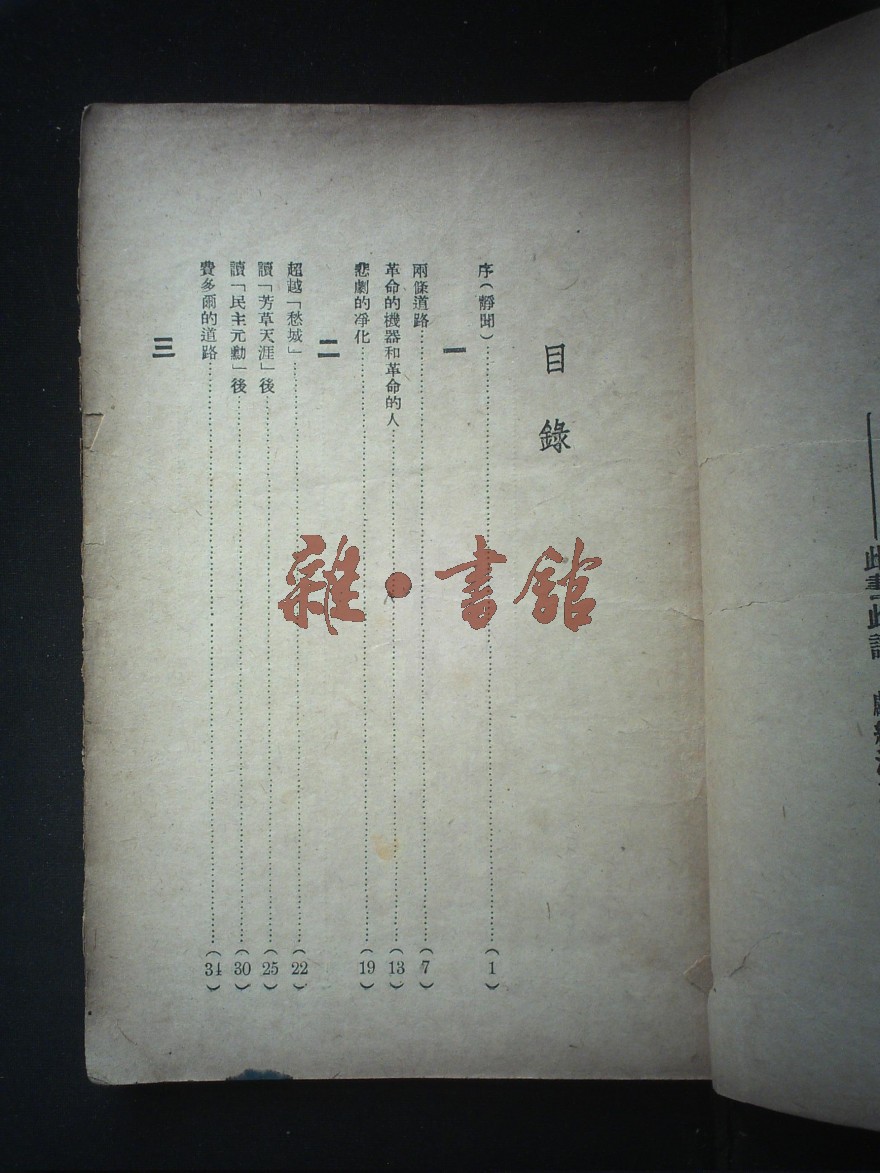 目錄
序(靜聞)………(1)
一
兩條道路………(7)
革命的機器和革命的人………(13)
悲劇的净化………(19)
二
超越「愁城」………(22)
讀「芳草天涯」後………(25)
讀「民主元勳」後………(30)
費多爾的道路………(34)
三
雜·書館